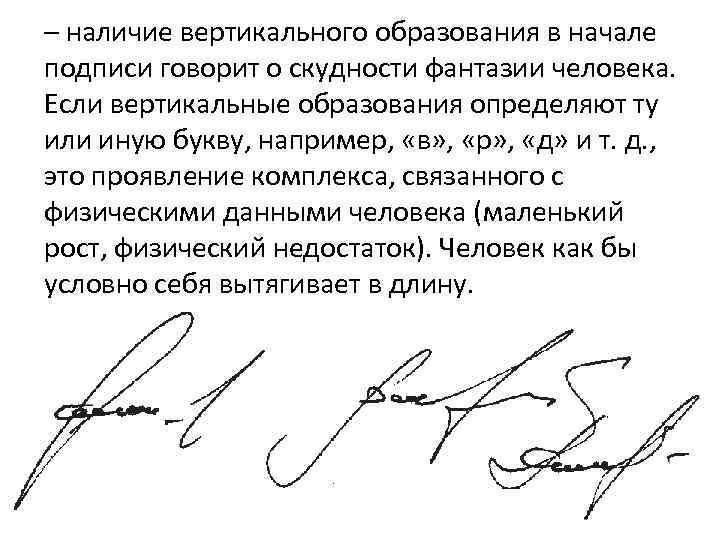 – наличие вертикального образования в начале
подписи говорит о скудности фантазии человека.
Если вертикальные образования определяют ту
или иную букву, например, «в», «р», «д» и т. д. ,
это проявление комплекса, связанного с
физическими данными человека (маленький
рост, физический недостаток). Человек как бы
условно себя вытягивает в длину.